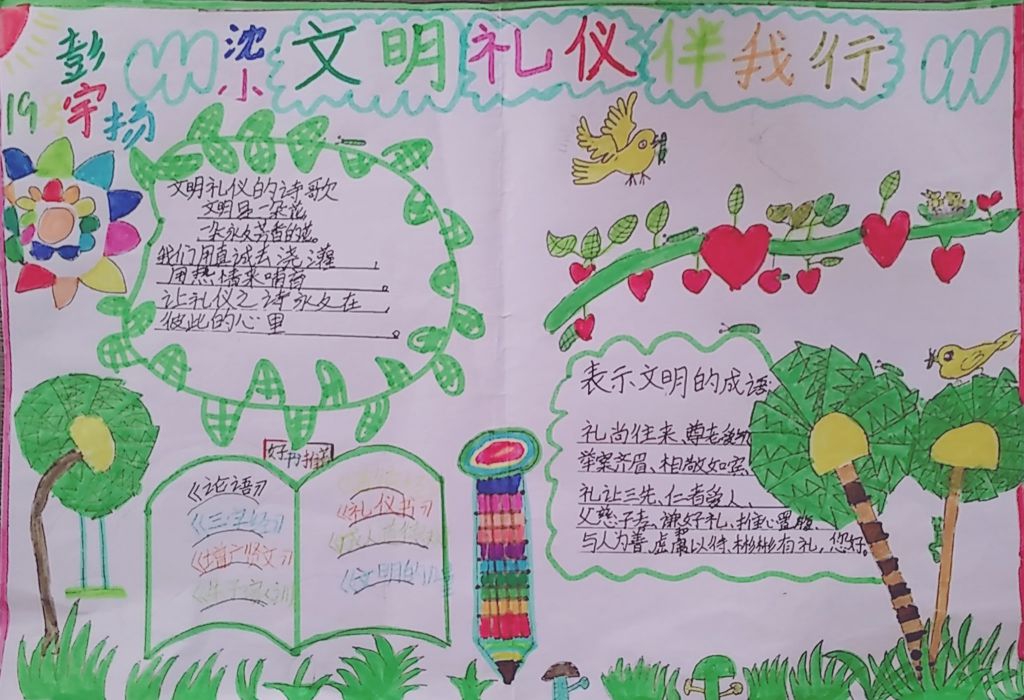 文明礼仪伴我行
彭宇扬
沈小
19号
文明礼仪的诗歌
文明是一朵花,
一朵永久芳香的花。
我们用真诚去浇灌,
用热情来哺育。
让礼仪之诗永久在
彼此的心里。
表示文明的成语
礼尚往来、尊老爱幼
举案齐眉、相敬如宾、
礼让三先、仁者爱人、
父慈子孝、谦好礼、推心置腹、
与人为善、虚席以待、彬彬有礼,您好。
好书推荐
《论语》
《三字经》
《增广贤文》
《弟子规》
《礼仪书》